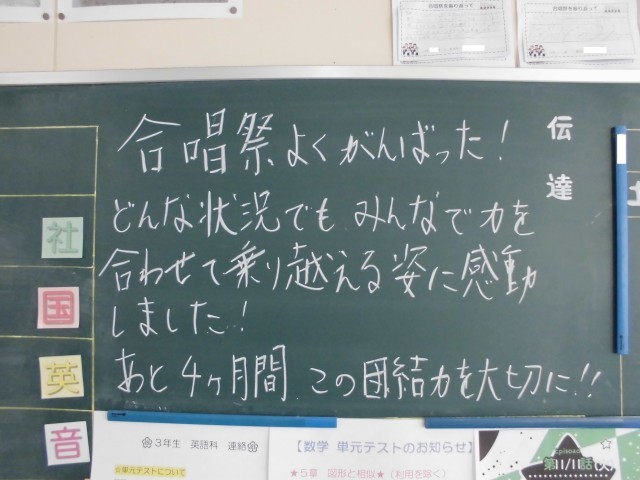 合唱祭を振り返って
合唱祭を振り返って
合唱祭よくがんばった!
どんな状況でも みんなで力を
合わせて乗り越える姿に感動
しました!
あと4ヶ月間 この団結力を大切に!!
伝達
社
国
英
音
3年生 英語科 連絡
☆単元テストについて
【数学 単元テストのお知らせ】
★5章 図形と相似★(利用を除く)